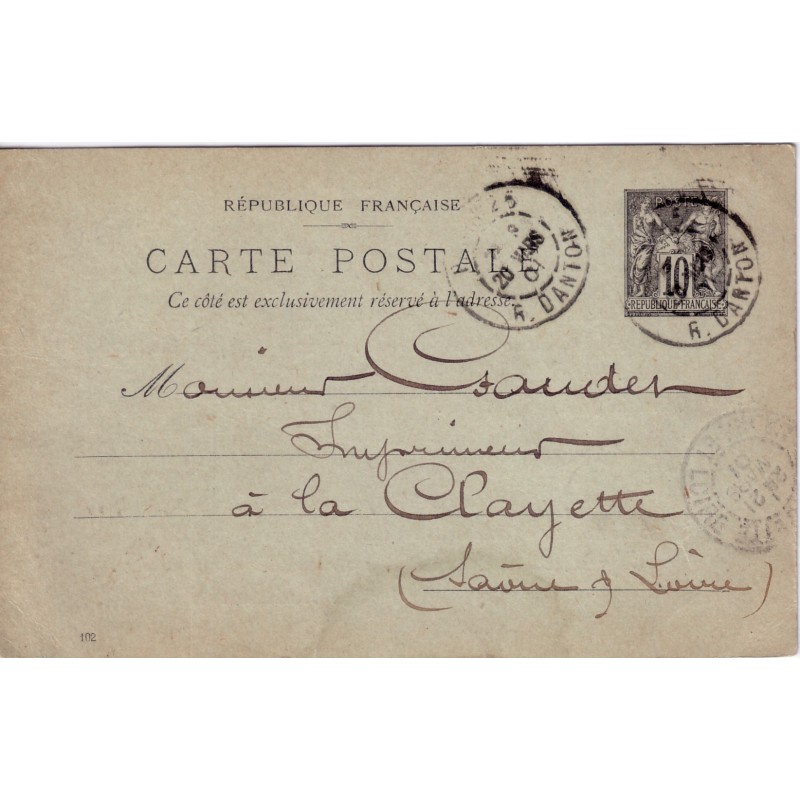 RÉPUBLIQUE FRANÇAISE
CARTE POSTALE
Ce côté est exclusivement réservé à l'adresse.
POSTES
10
RÉPUBLIQUE FRANÇAISE
20 MARS
R. DANTON
R. DANTON
Monsieur Gaudet
Imprimeur
à la Clayette
(Saône & Loire)
102